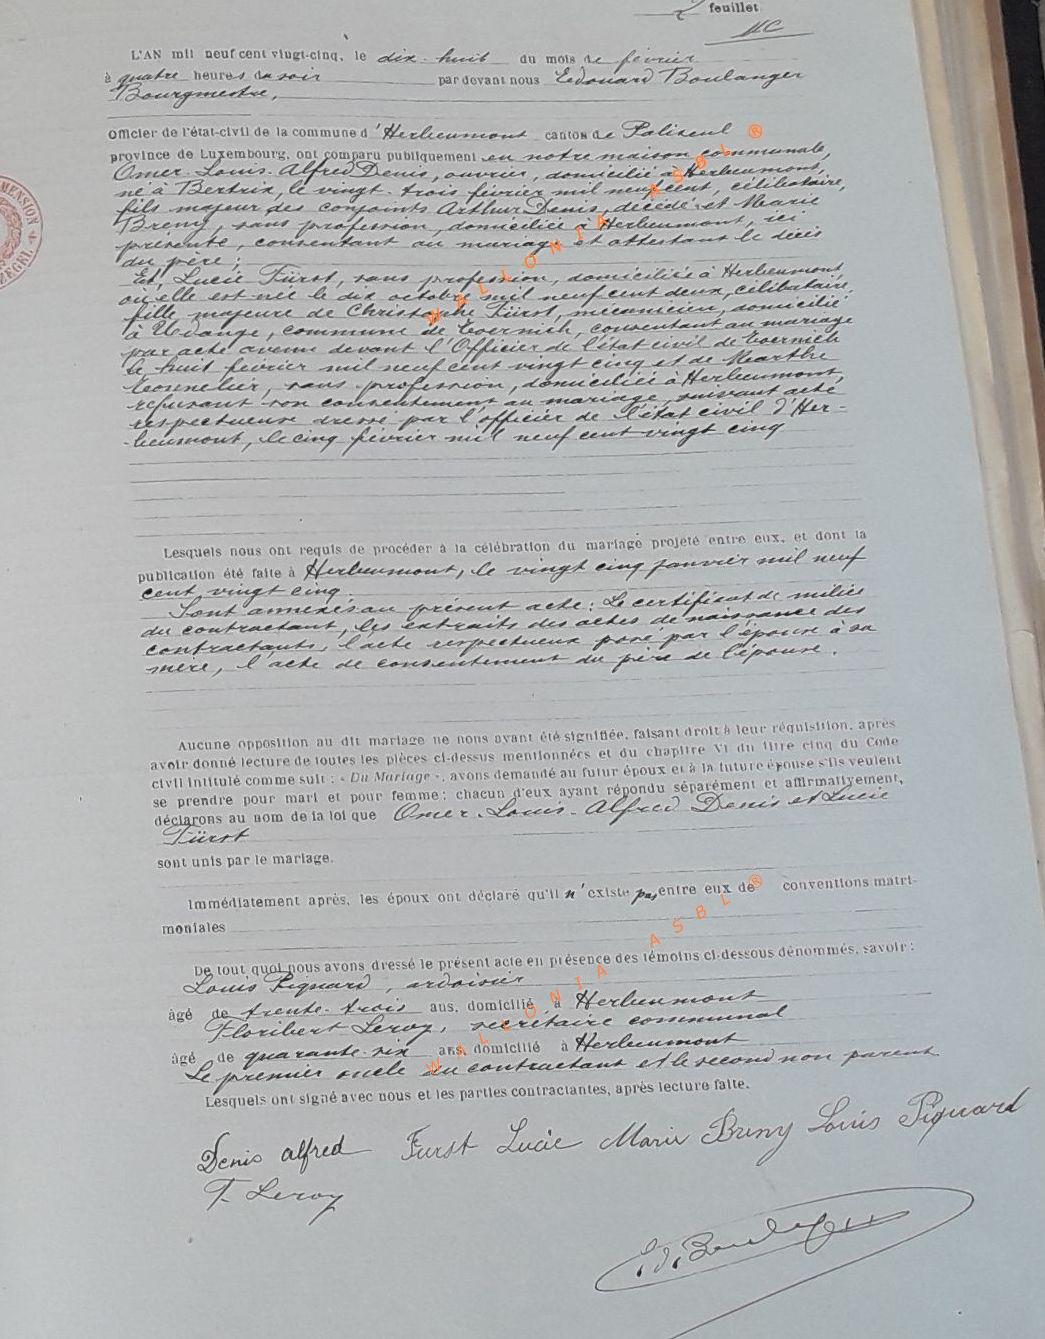 2 feuillet
L'AN mil neuf cent vingt-cinq, le dix-huit du mois de février
à quatre heures du soir par devant nous Edouard Boulanger
Bourgmestre,
officier de l'état-civil de la commune d'Herbeumont canton de Paliseul
province de Luxembourg, ont comparu publiquement en notre maison communale,
Omer-Louis-Alfred Denis, ouvrier, domicilié à Herbeumont,
né à Bertrix, le vingt-trois février mil neuf cent, célibataire,
fils majeur des conjoints Arthur Denis, décédé et Marie
Breny, sans profession, domiciliée à Herbeumont, ici
présente, consentant au mariage et attestant le décès
du père ;
Et, Lucie Fürst, sans profession, domiciliée à Herbeumont,
où elle est née le dix octobre mil neuf cent deux, célibataire,
fille majeure de Christophe Fürst, mécanicien, domicilié
à Udange, commune de Toernich, consentant au mariage
par acte avenu devant l'Officier de l'état civil de Toernich
le huit février mil neuf cent vingt cinq et de Marthe
Tonnelier, sans profession, domiciliée à Herbeumont,
refusant son consentement au mariage, suivant acte
respectueux dressé par l'officier de l'état civil d'Her-
-beumont, le cinq février mil neuf cent vingt cinq
Lesquels nous ont requis de procéder à la célébration du mariage projeté entre eux, et dont la
publication été faite à Herbeumont, le vingt cinq janvier mil neuf
cent vingt cinq.
Sont annexés au présent acte : Le certificat de milice
du contractant, les extraits des actes de naissance des
contractants, l'acte respectueux posé par l'épouse à sa
mère, l'acte de consentement du père de l'épouse.
Aucune opposition au dit mariage ne nous ayant été signifiée, faisant droit à leur réquisition, après
avoir donné lecture de toutes les pièces ci-dessus mentionnées et du chapitre VI du titre cinq du Code
civil intitulé comme suit : « Du Mariage », avons demandé au futur époux et à la future épouse s'ils veulent
se prendre pour mari et pour femme ; chacun d'eux ayant répondu séparément et affirmativement,
déclarons au nom de la loi que Omer-Louis-Alfred Denis et Lucie
Fürst
sont unis par le mariage.
Immédiatement après, les époux ont déclaré qu'il n'existe pas entre eux de conventions matri-
moniales
De tout quoi nous avons dressé le présent acte en présence des témoins ci-dessous dénommés, savoir :
Louis Piquard, ardoisier
âgé de trente-trois ans, domicilié à Herbeumont
Floribert Leroy, secrétaire communal
âgé de quarante-six ans, domicilié à Herbeumont
Le premier oncle du contractant et le second non parent
Lesquels ont signé avec nous et les parties contractantes, après lecture faite.
Denis alfred Furst Lucie Marie Breny Louis Piquard
F. Leroy
Ed. Boulanger
WALLONIA ASBL ®
WALLONIA ASBL ®